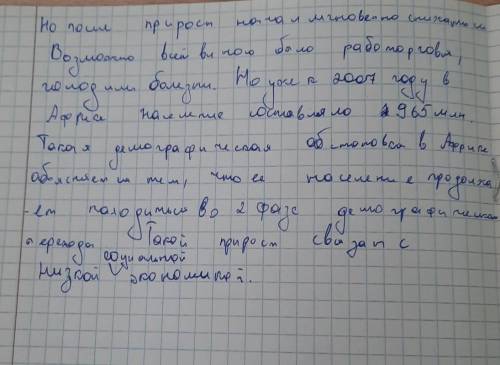 Но после прирост начал мгновенно
Возможно всей виною было работорговля,
голод или болезни. Но уже к 2007 году в
Африке население составляло 965 млн.
Такая демографическая обстановка в Африке
объясняется тем, что её население продолжа
-ет находиться во 2 фазе демографического
перехода Такой прирост связан с
социальной
низкой экономикой.